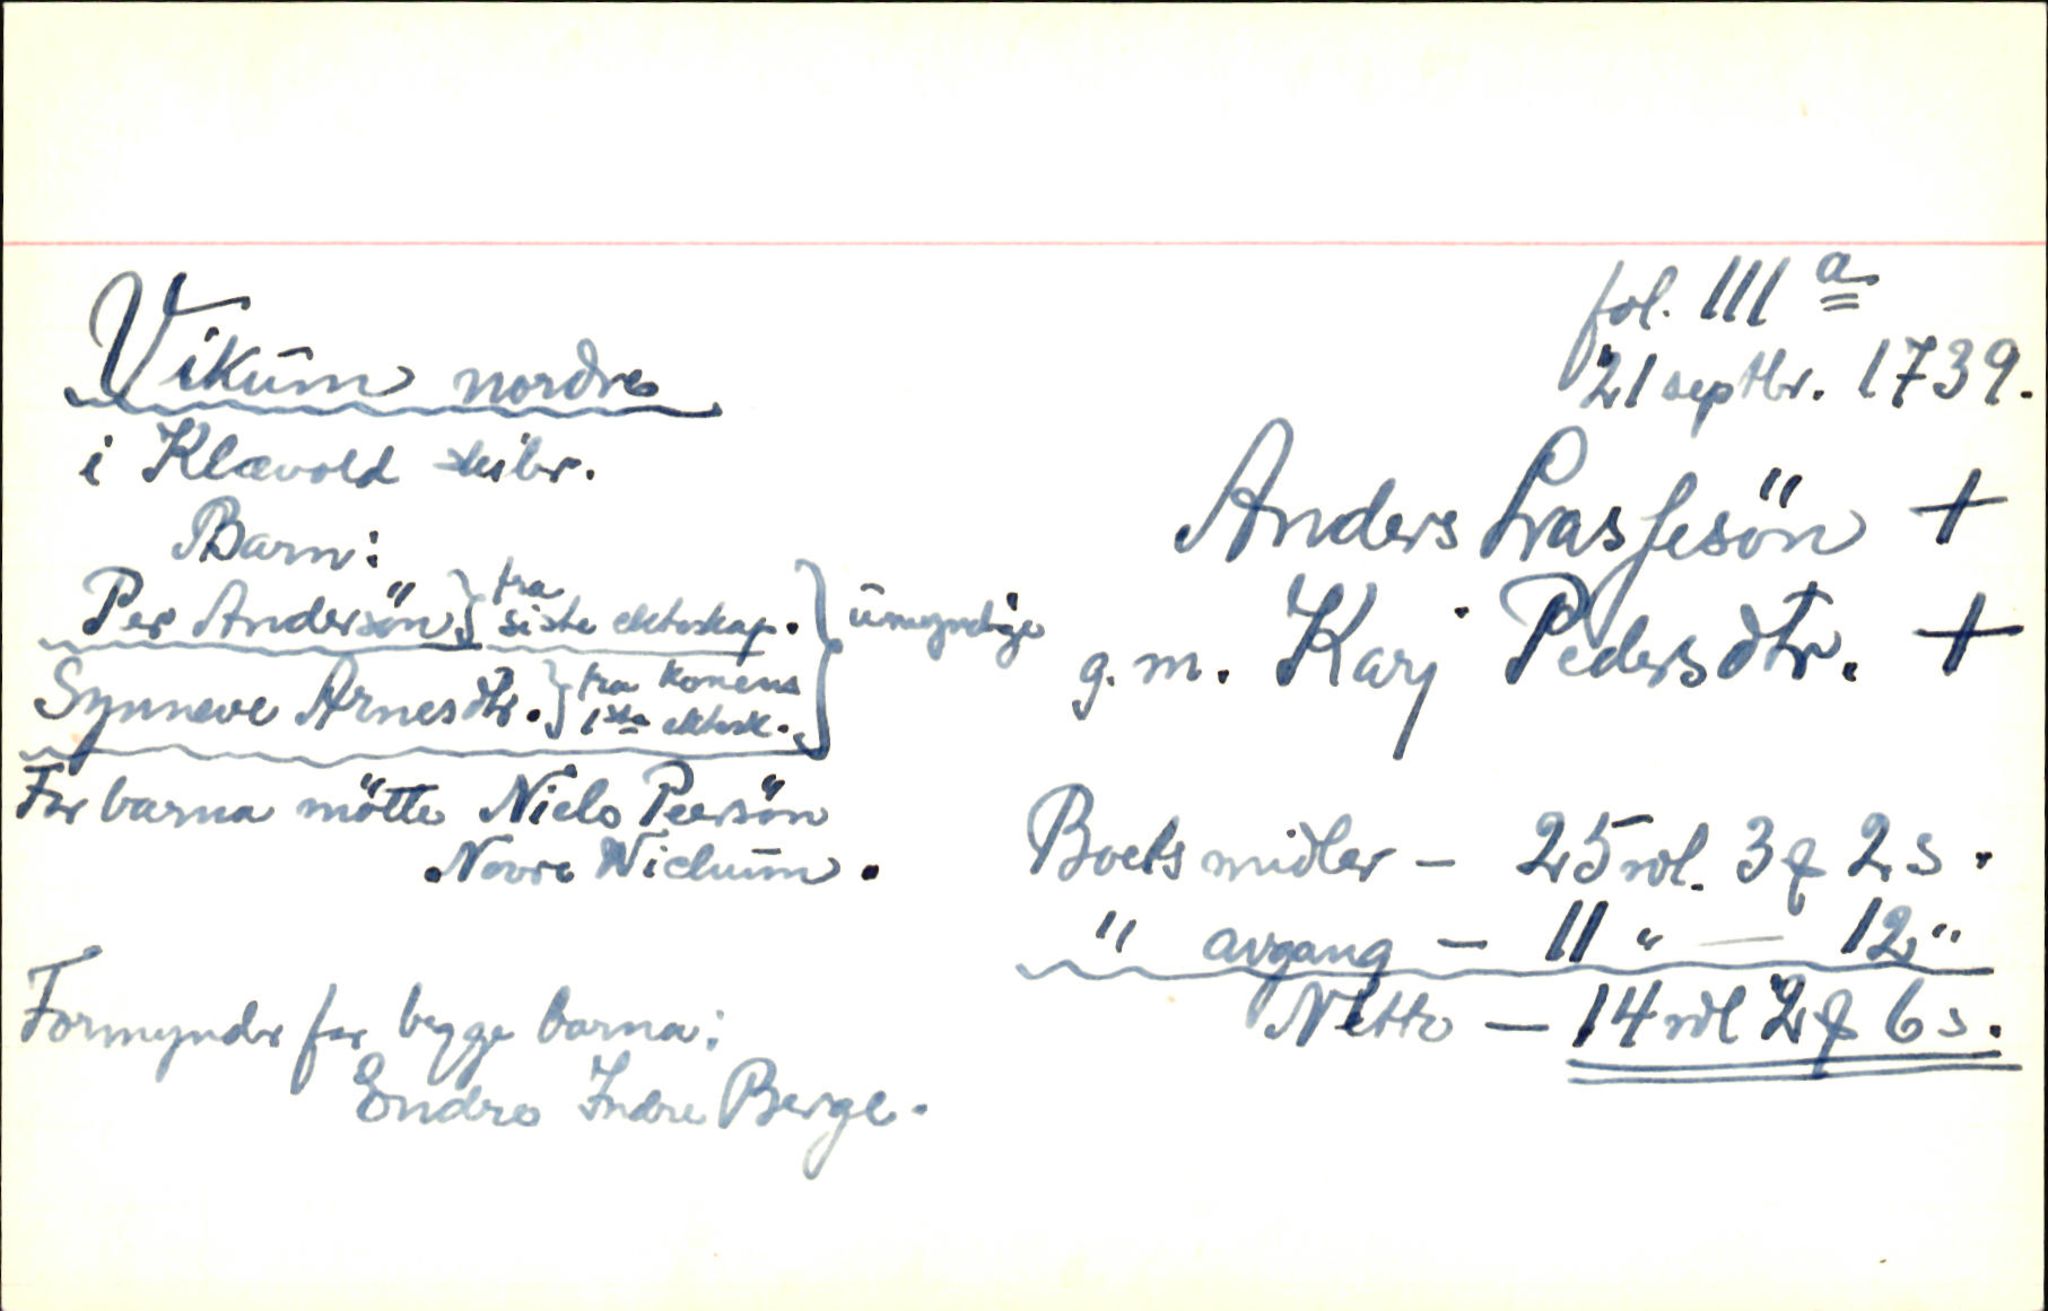 fol. 111 a
21 septbr. 1739.
Vikum nordre
i Klævold skibr.
Anders Lassesøn +
g. m. Karj Pedersdtr. +
Barn:
Per Andersøn } fra siste ekteskap. } umyndige
Synneve Arnesdtr. } fra konens 1ste ektesk.
For barna møtte Niels Peersøn
Novre Wichum.
Boets midler — 25 rdl. 3 f 2 s.
" avgang — 11 " — 12 "
Netto — 14 rdl 2 f 6 s.
Formynder for begge barna:
Endre Indre Berge.